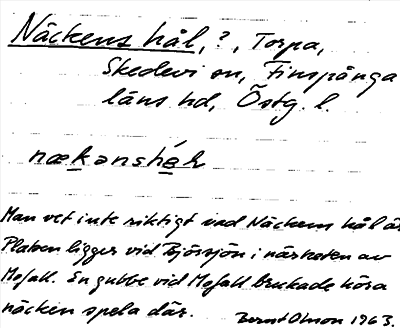 Näckens hål, ?, Torpa,
Skedevi sn, Finspånga
läns hd, Östg. l.
nækənshạ́l
Man vet inte riktigt vad Näckens hål är
Platsen ligger vid Björsjön i närheten av
Mofall. En gubbe vid Mofall brukade höra
näcken spela där. Bernt Olsson 1963.